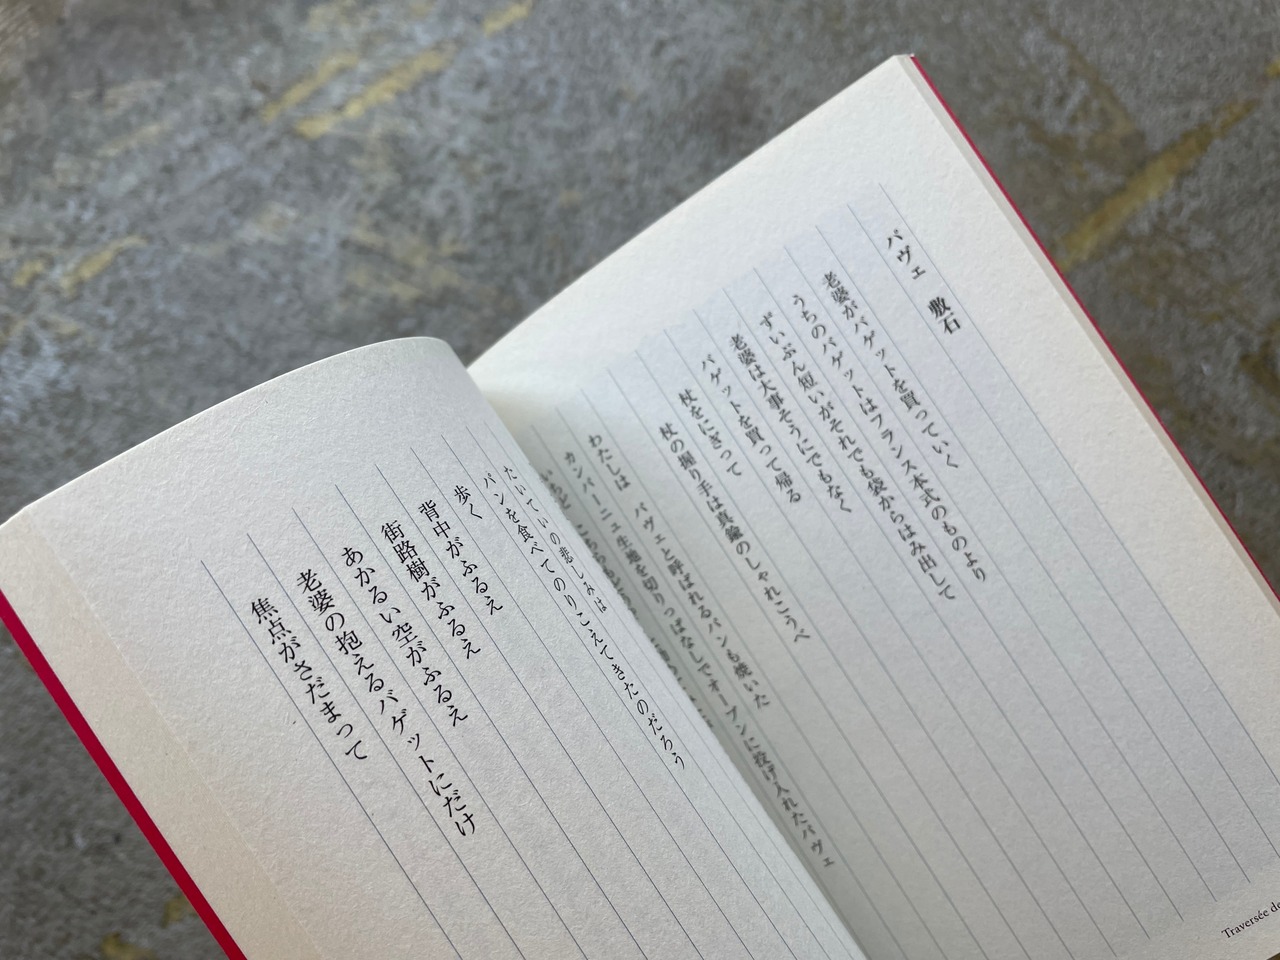 パヴェ 敷石
老婆がバゲットを買っていく
うちのバゲットはフランス本式のものより
ずいぶん短いがそれでも袋からはみ出して
老婆は大事そうにでもなく
バゲットを買って帰る
杖をにぎって
杖の握り手は真鍮のしゃれこうべ
わたしは パヴェと呼ばれるパンも焼いた
カンパーニュ生地を切りっぱなしでオーブンに投げ入れたパヴェ
たいていの悲しみは
パンを食べてのりこえてきたのだろう
歩く
背中がふるえ
街路樹がふるえ
あかるい空がふるえ
老婆の抱えるバゲットにだけ
焦点がさだまって
Traversée de